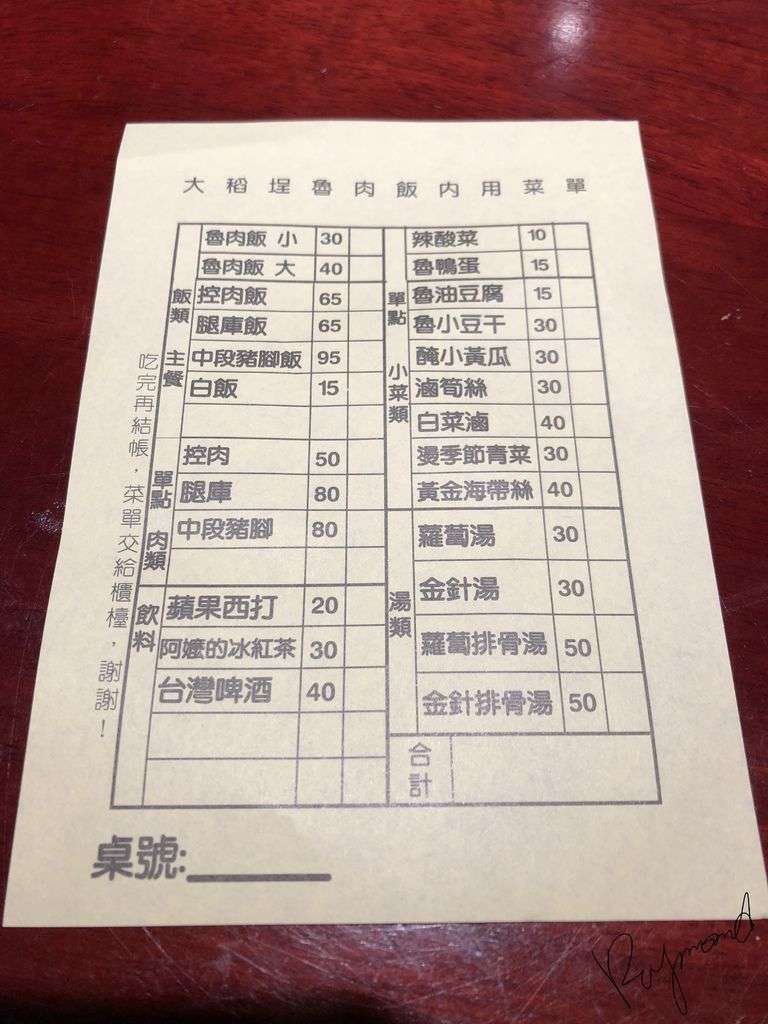 大稻埕魯肉飯內用菜單
飯類 主餐
魯肉飯 小 30
魯肉飯 大 40
控肉飯 65
腿庫飯 65
中段豬腳飯 95
白飯 15
單點 肉類
控肉 50
腿庫 80
中段豬腳 80
飲料
蘋果西打 20
阿嬤的冰紅茶 30
台灣啤酒 40
單點 小菜類
辣酸菜 10
魯鴨蛋 15
魯油豆腐 15
魯小豆干 30
醃小黃瓜 30
滷筍絲 30
白菜滷 40
燙季節青菜 30
黃金海帶絲 40
湯類
蘿蔔湯 30
金針湯 30
蘿蔔排骨湯 50
金針排骨湯 50
合計
吃完再結帳，菜單交給櫃檯，謝謝！
桌號:
Raymond